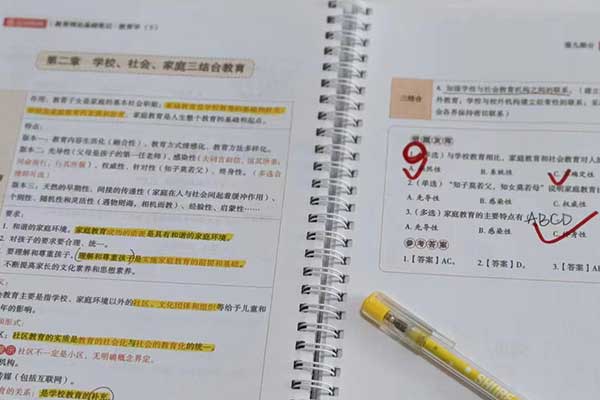 教育理论基础笔记·教育学(下)
第二章 学校、社会、家庭三结合教育
作用:教育子女是家庭的基本社会职能;
家庭教育是人生整个教育的基础和起点。
特点:
版本一:教育内容生活化(融合性)、教育方式情感化、教育方法多样化。
版本二:先导性(父母是孩子的第一任老师)、感染性
权威性、针对性(知子莫若父)、终身性。
版本三:天然的早期性、间接的传递性(家庭在人与社会间起着缓冲作用)、
个别性、随机性和灵活性(遇物则诲,相机而教)、经验性、启蒙性……
要求:
1. 和谐的家庭环境。家庭教育成功的必要是具有和谐的家庭环境。
2. 对孩子的要求要合理、统一。
要理解和尊重孩子。理解和尊重孩子是实施家庭教育的前提和基础。
不断提高家长的文化素养和思想素养。
教育主要是指学校、家庭环境以外的社区、文化团体和组织等给予儿童和
年的影响。
和形式:
社区教育的实质是教育的社会化与社会的教育化的统一。
社区不一定是小区,无明确概念界定。
传媒(包括互联网)。
教育的关系:是学校教育的补充。
第九部分
三结合
4. 加强学校与社会教育机构之间的联系。(建立
外教育,学校与校外机构建立经常性的联系;采
会各界保持密切联系)
1. (多选)与学校教育相比,家庭教育和社会教育对人
9
2. (单选)“知子莫若父,知女莫若母”说明家庭教育
A. 先导性 B. 感染性 C. 权威性
3. (多选)家庭教育的主要特点有 ABCD
A. 先导性 B. 感染性 C. 终身性
参考答案
1.【答案】AC。 2.【答案】D。 3.【答案】AB